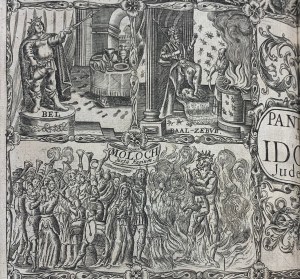 BEL
BAAL-ZEBUB
MOLOCH
PAN
IDO
Jude